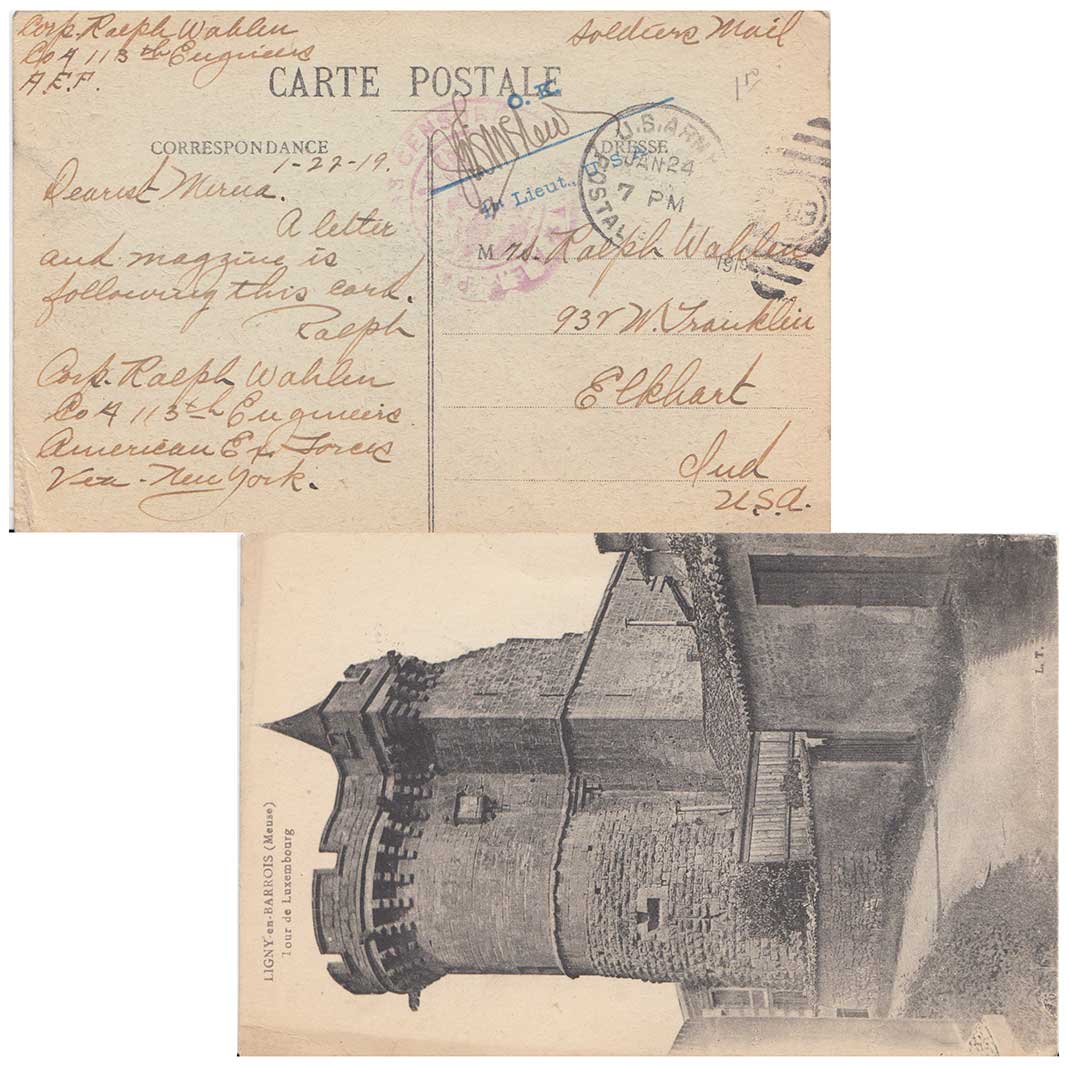 Corp. Ralph Wahlen
Co A 113th Engineers
A.E.F.
Soldiers Mail
CARTE POSTALE
CORRESPONDANCE
ADRESSE
O.K.
1st Lieut., U.S.A.
CENSOR
A.E.F.
U.S. ARMY
POSTAL
JAN 24
7 PM
1919
1-22-19.
Dearest Merua.
A letter
and magzine is
following this card.
Ralph
Corp. Ralph Wahlen
Co A 113th Engineers
American Ex. Forces
Via - New York.
Mrs. Ralph Wahlen
932 W. Franklin
Elkhart
Ind
U.S.A.
LIGNY-en-BARROIS (Meuse)
Tour de Luxembourg
L. T.